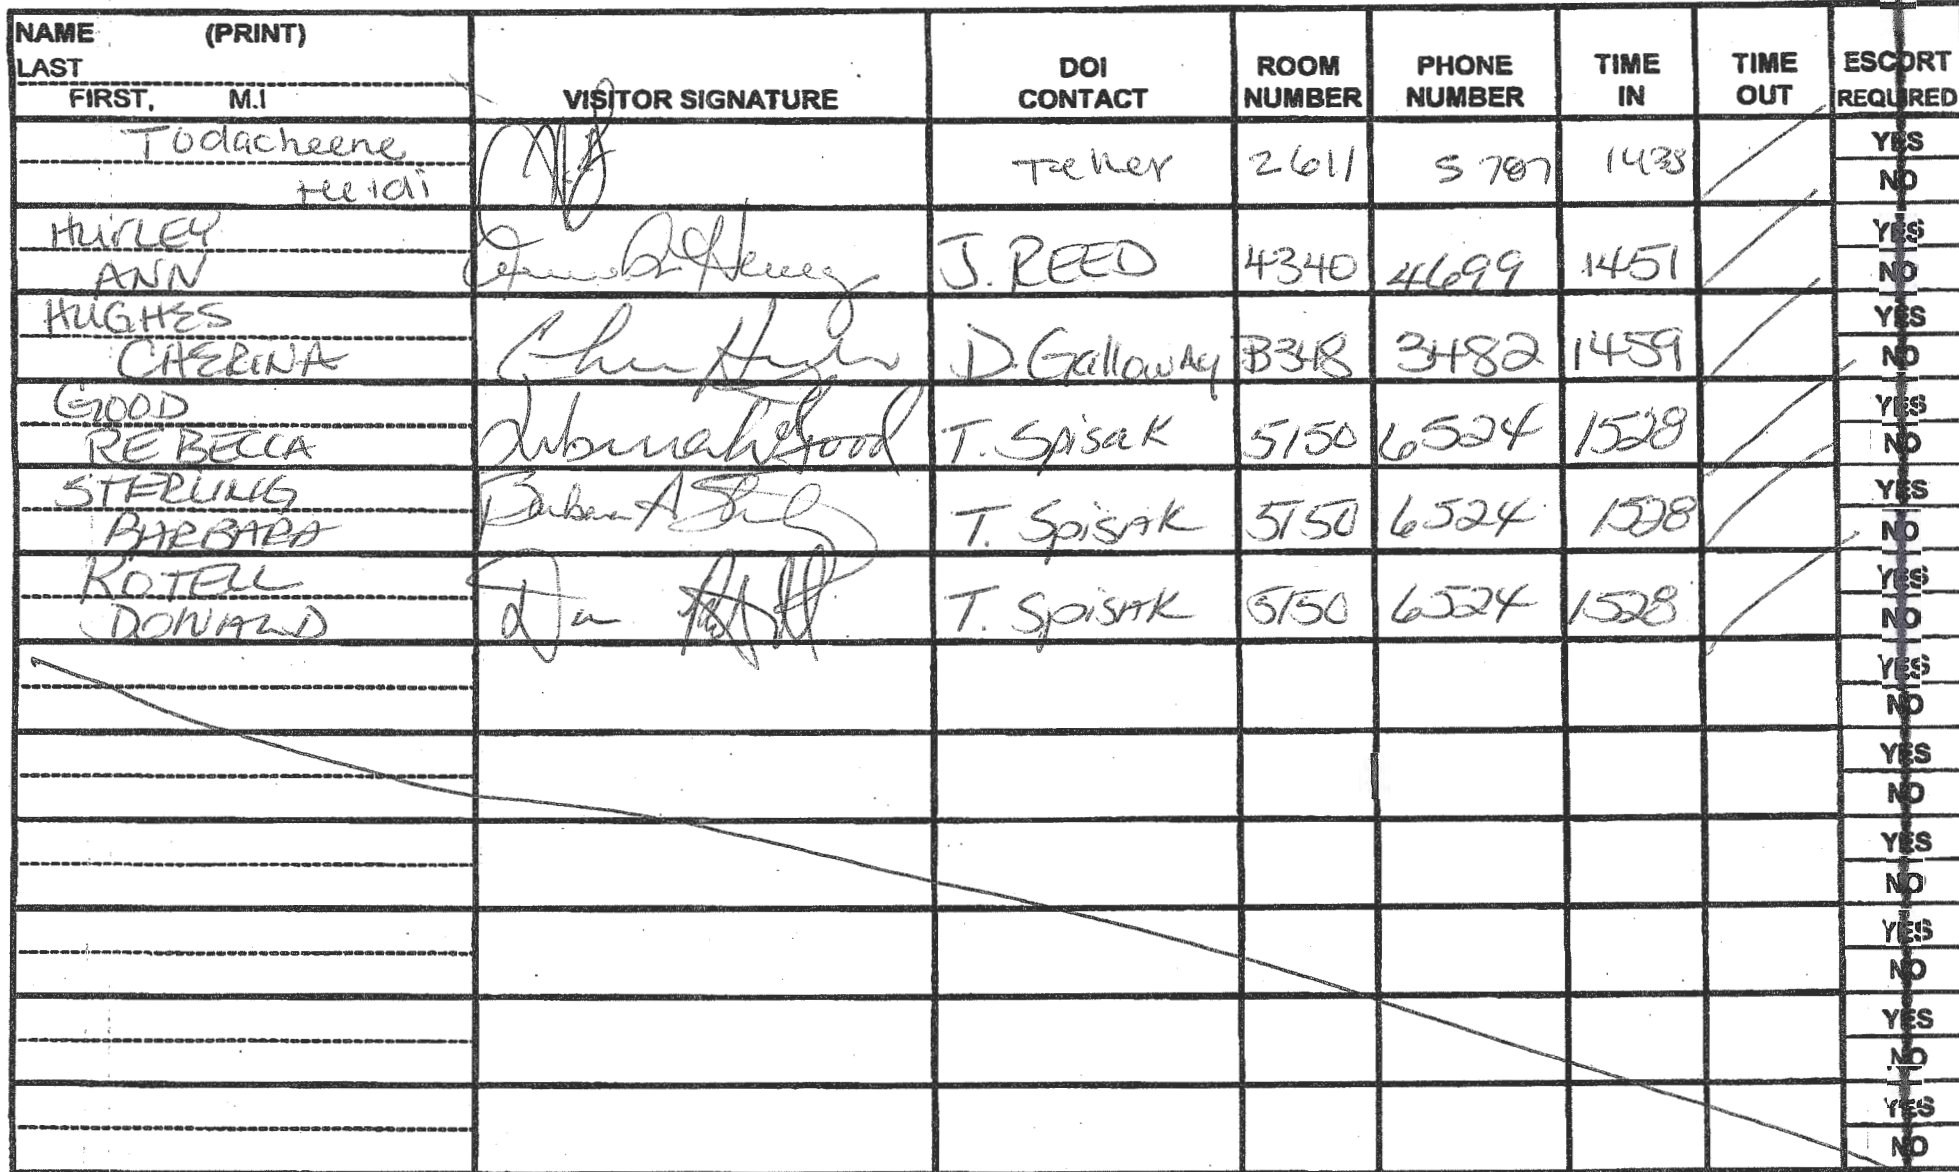 NAME (PRINT)
LAST
FIRST, M.I
VISITOR SIGNATURE
DOI CONTACT
ROOM NUMBER
PHONE NUMBER
TIME IN
TIME OUT
ESCORT REQUIRED
Todacheene
Heidi
2611
1438
YES
NO
HURLEY
ANN
J. REED
4340
4699
1451
YES
NO
HUGHES
CHERINA
D. Galloway
B348
3482
1459
YES
NO
GOOD
REBECCA
T. Spisak
5150
6524
1528
YES
NO
STERLING
BARBARA
Barbara A
T. SpisAK
5150
6524
1528
YES
NO
ROTELL
DONALD
T. SpisAK
5150
6524
1528
YES
NO
YES
NO
YES
NO
YES
NO
YES
NO
YES
NO
YES
NO